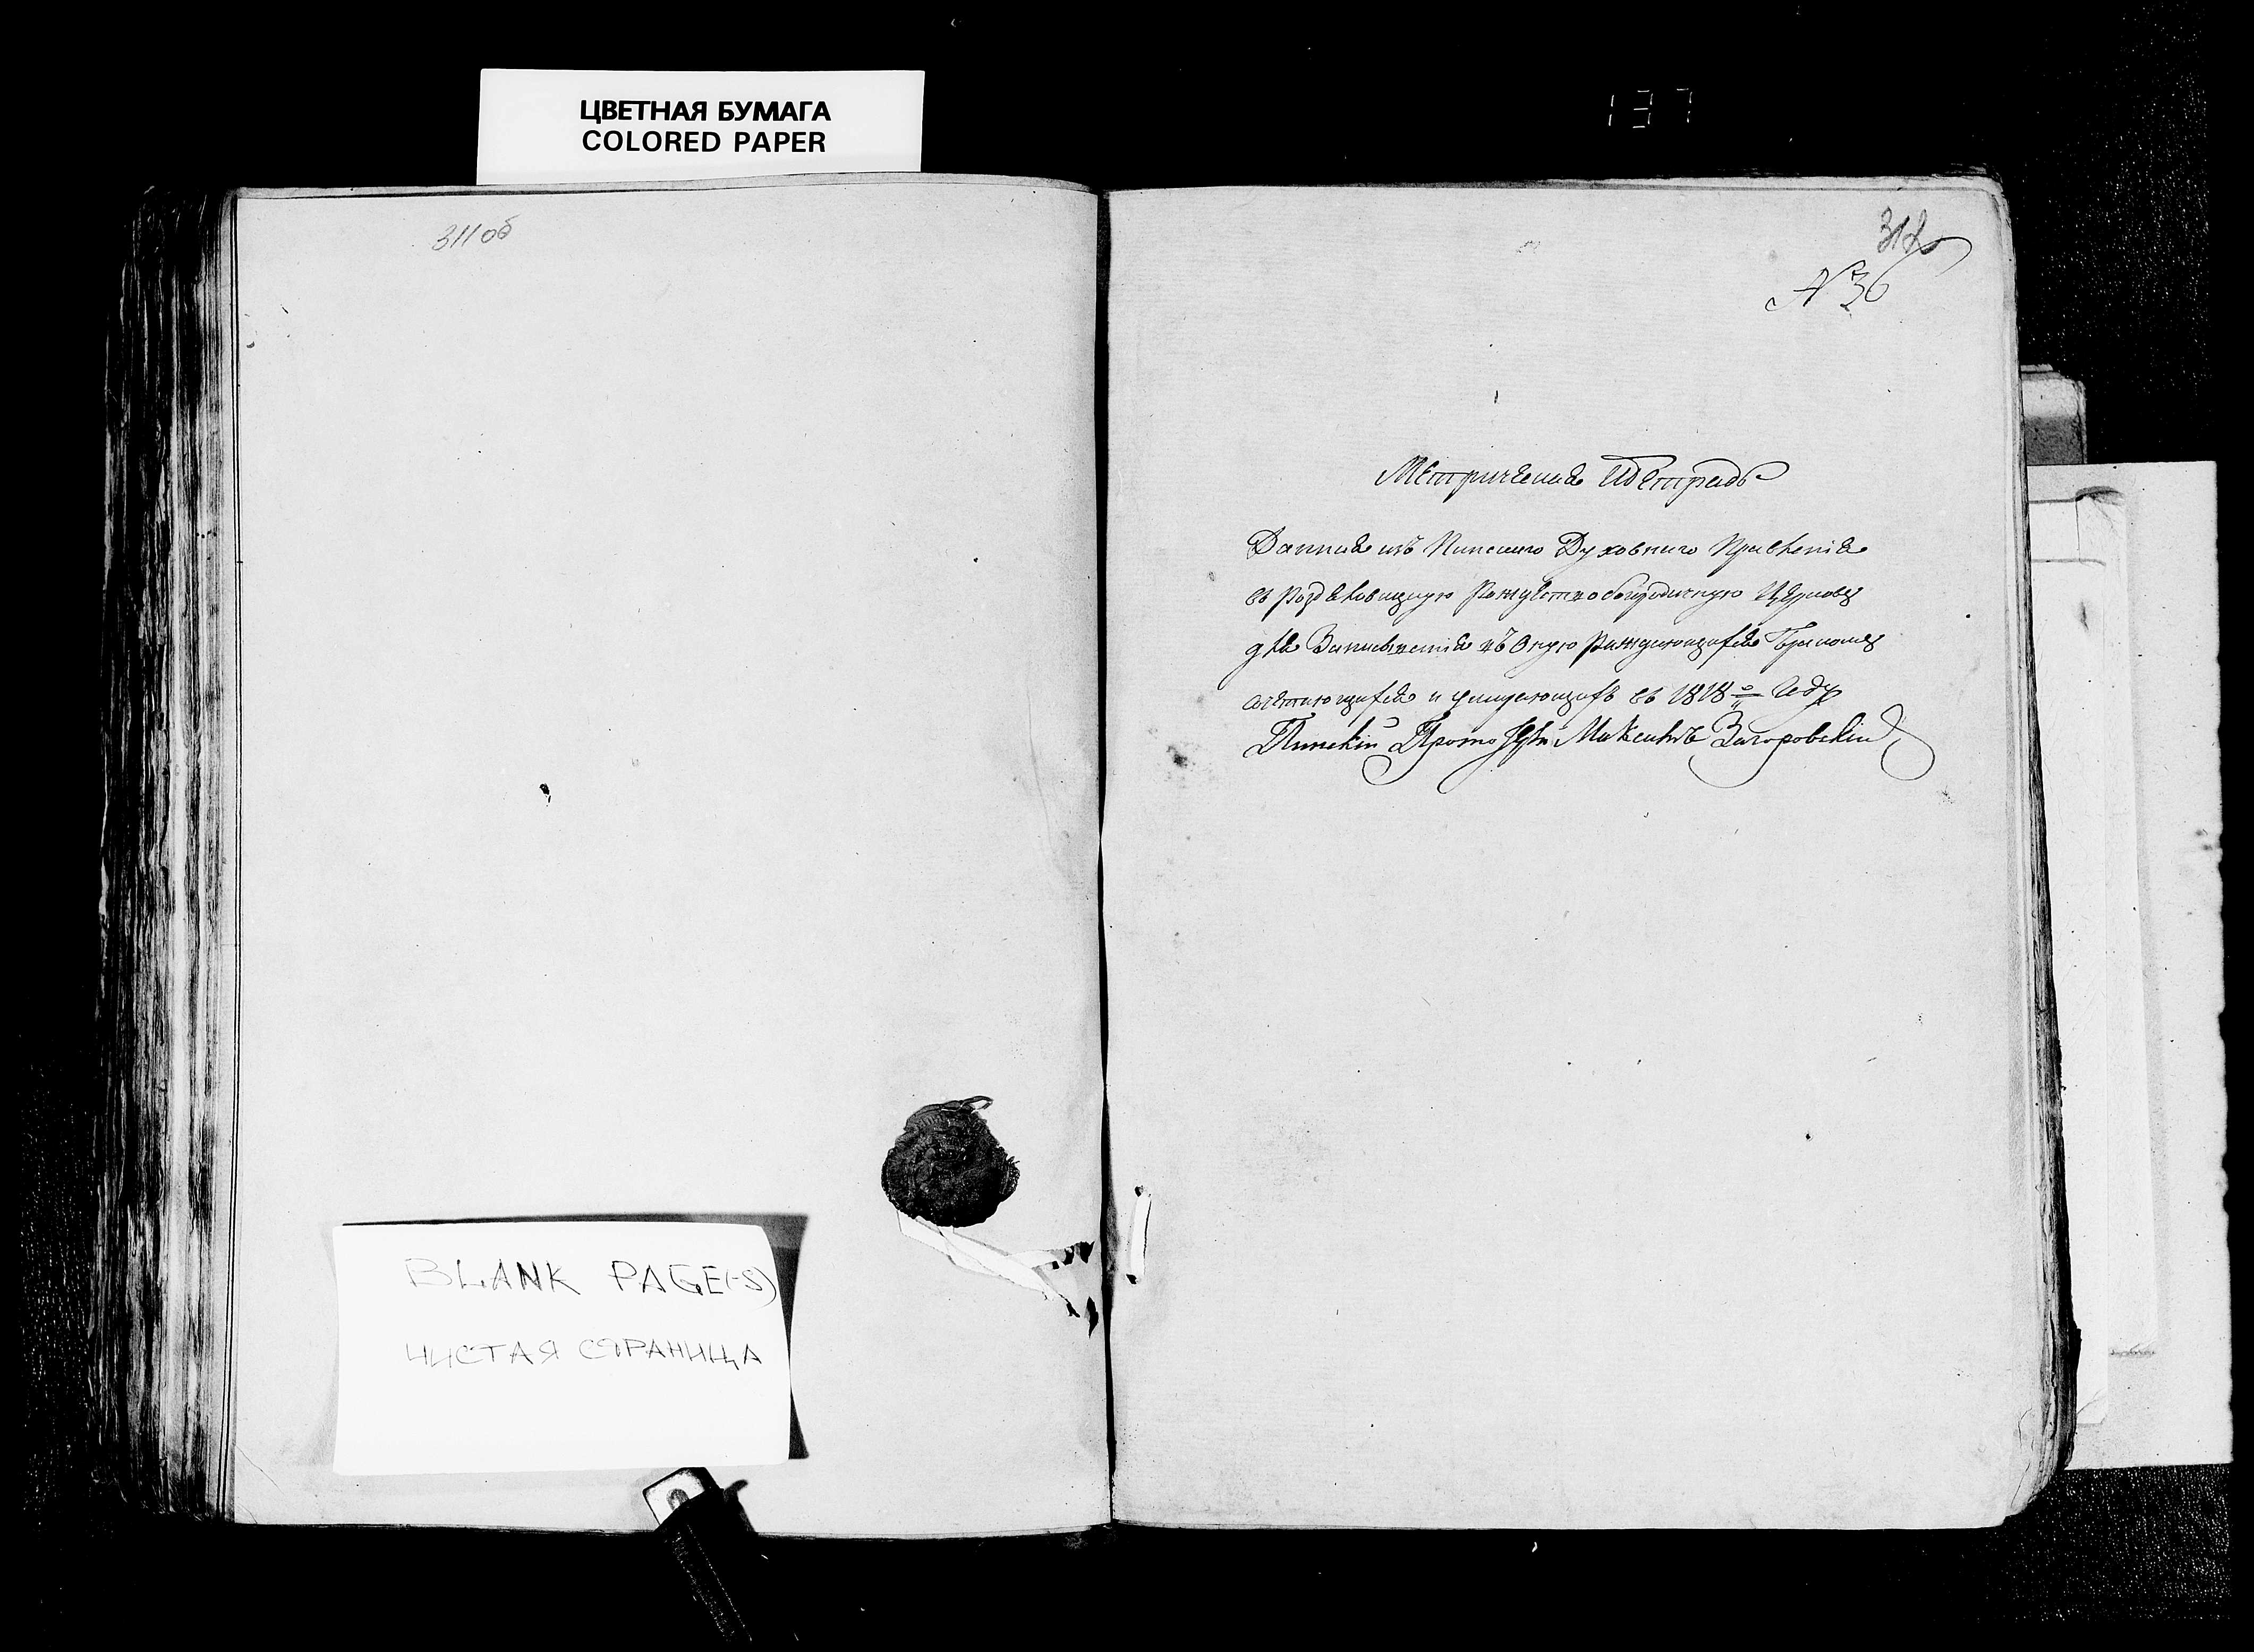 ЦВЕТНАЯ БУМАГА
COLORED PAPER
137
311 об
312
№ 36
Метрическая Тетрадь
Данная изъ Пинскаго Духовнаго Правленія
въ Рождественскую Рождествобогородичную Церковь
для Записыванія въ оную Рождающихся Бракомъ
сочетающихся и умирающихъ въ 1818 Году
Пинскій Протоіерей Максимъ Загоровскій
BLANK PAGE(-S)
ЧИСТАЯ СТРАНИЦА